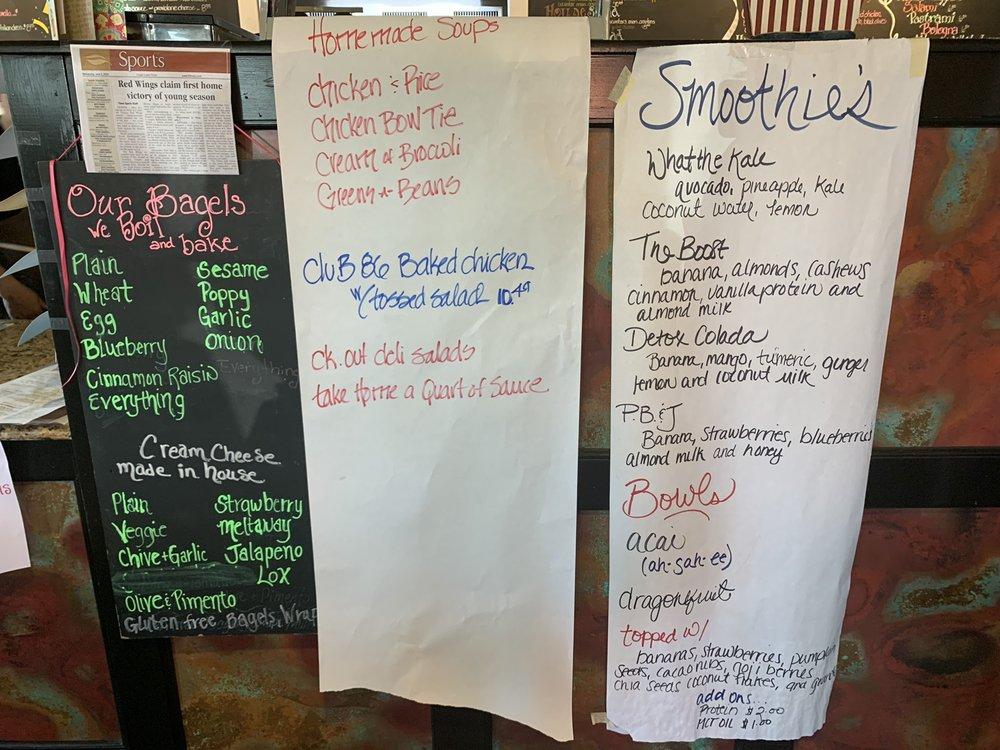 Sports
Red Wings claim first home
victory of young season
Our Bagels
we Boil
and bake
Plain
Wheat
Egg
Blueberry
Cinnamon Raisin
Everything
Sesame
Poppy
Garlic
Onion
Everything
Cream Cheese
made in house
Plain
Veggie
Chive + Garlic
Olive & Pimento
Strawberry
Meltaway
Jalapeno
Lox
Gluten free Bagels, Wrap
Homemade Soups
Chicken & Rice
Chicken Bow Tie
Cream of Brocoli
Greens + Beans
Club 86 Baked chicken
w/ tossed salad 10.49
ck. out deli salads
take Home a Quart of Sauce
Smoothie's
What the Kale
avocado, pineapple, Kale
Coconut water, lemon
The Boost
banana, almonds, cashews
cinnamon, vanilla protein and
almond milk
Detox Colada
Banana, mango, tumeric, ginger
lemon and coconut milk
P.B. & J
Banana, strawberries, blueberries
almond milk and honey
Bowls
acai
(ah-sah-ee)
dragonfruit
topped w/
bananas, strawberries, pumpkin
seeds, cacao nibs, goji berries
chia seeds coconut flakes, and
add ons...
Protein $2.00
MCT OIL $1.00
Salami
Pastrami
Bologna